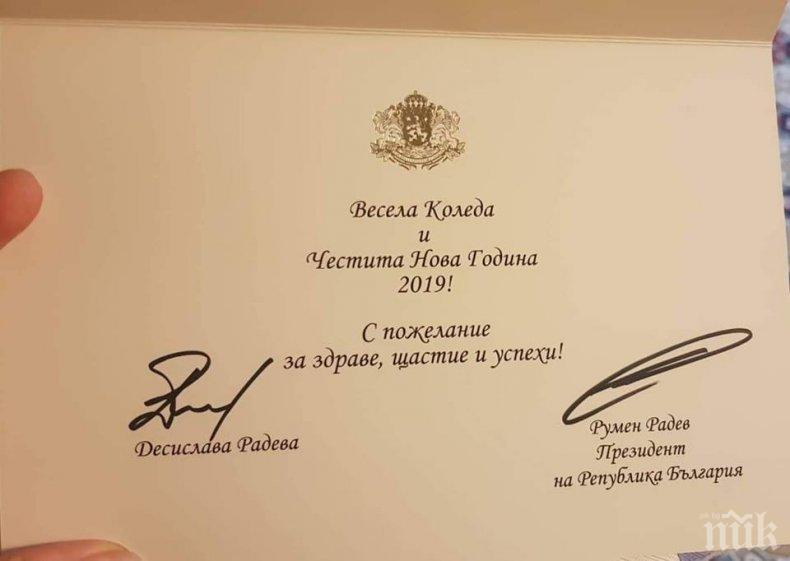 Весела Коледа
и
Честита Нова Година
2019!
С пожелание
за здраве, щастие и успехи!
Десислава Радева
Румен Радев
Президент
на Република България
пик